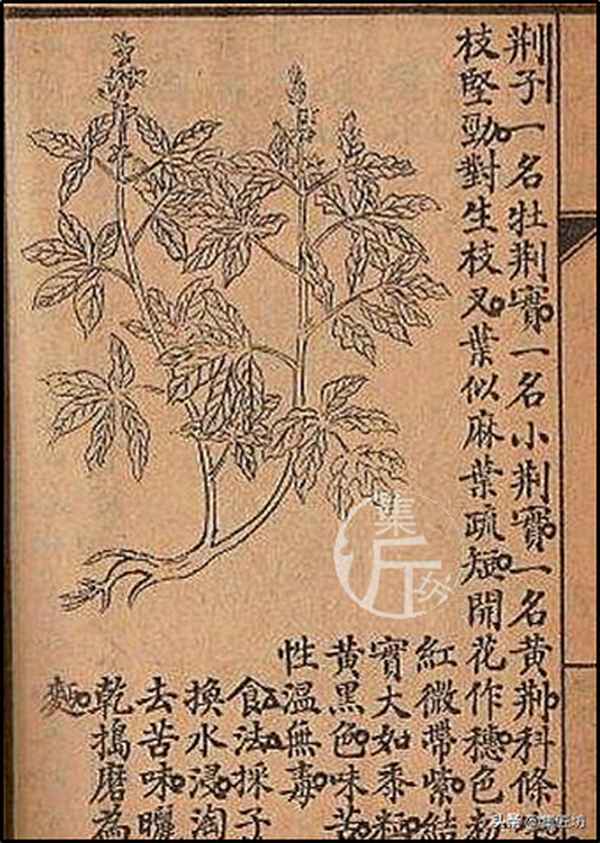 荆子一名牡荆實一名小荆實一名黄荆科條
枝堅勁對生枝叉葉似麻葉疏短開花作穗色粉
紅微帶紫結
實大如黍粒
黄黑色味苦
性溫無毒
食法採子
換水浸淘
去苦味曬
乾搗磨為
麪
集匠坊
头条@集匠坊